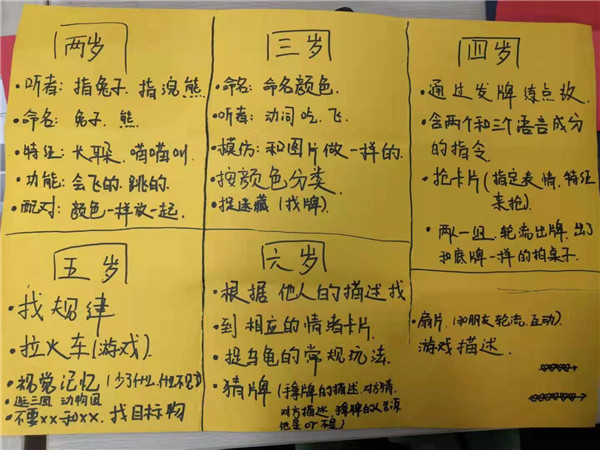 两岁
·听者: 指兔子. 指浣熊
·命名: 兔子. 熊
·特征: 长耳朵. 喵喵叫
·功能: 会飞的. 跳的.
·配对: 颜色一样放一起.
三岁
·命名: 命名颜色.
·听者: 动词 吃、飞.
·模仿: 和图片做一样的.
·按颜色分类
·捉迷藏 (找牌).
四岁
·通过发牌练点数
·含两个和三个语言成分
的指令
·抢卡片 (指定表情, 特征
来抢)
·两人一组, 轮流出牌, 出了
和底牌一样的拍桌子.
五岁
·找规律
·拉火车 (游戏)
·视觉记忆 (少了什么, 什么不见了)
·逛三园 动物园
·不要xx和xx. 找目标物
六岁
·根据他人的描述找
到相应的情绪卡片.
·捉乌龟的常规玩法.
·猜牌 (拿牌的描述, 对方猜.
对方描述, 拿牌的人回答
他是 or 不是)
·扇片 (和朋友轮流, 互动).
游戏描述.